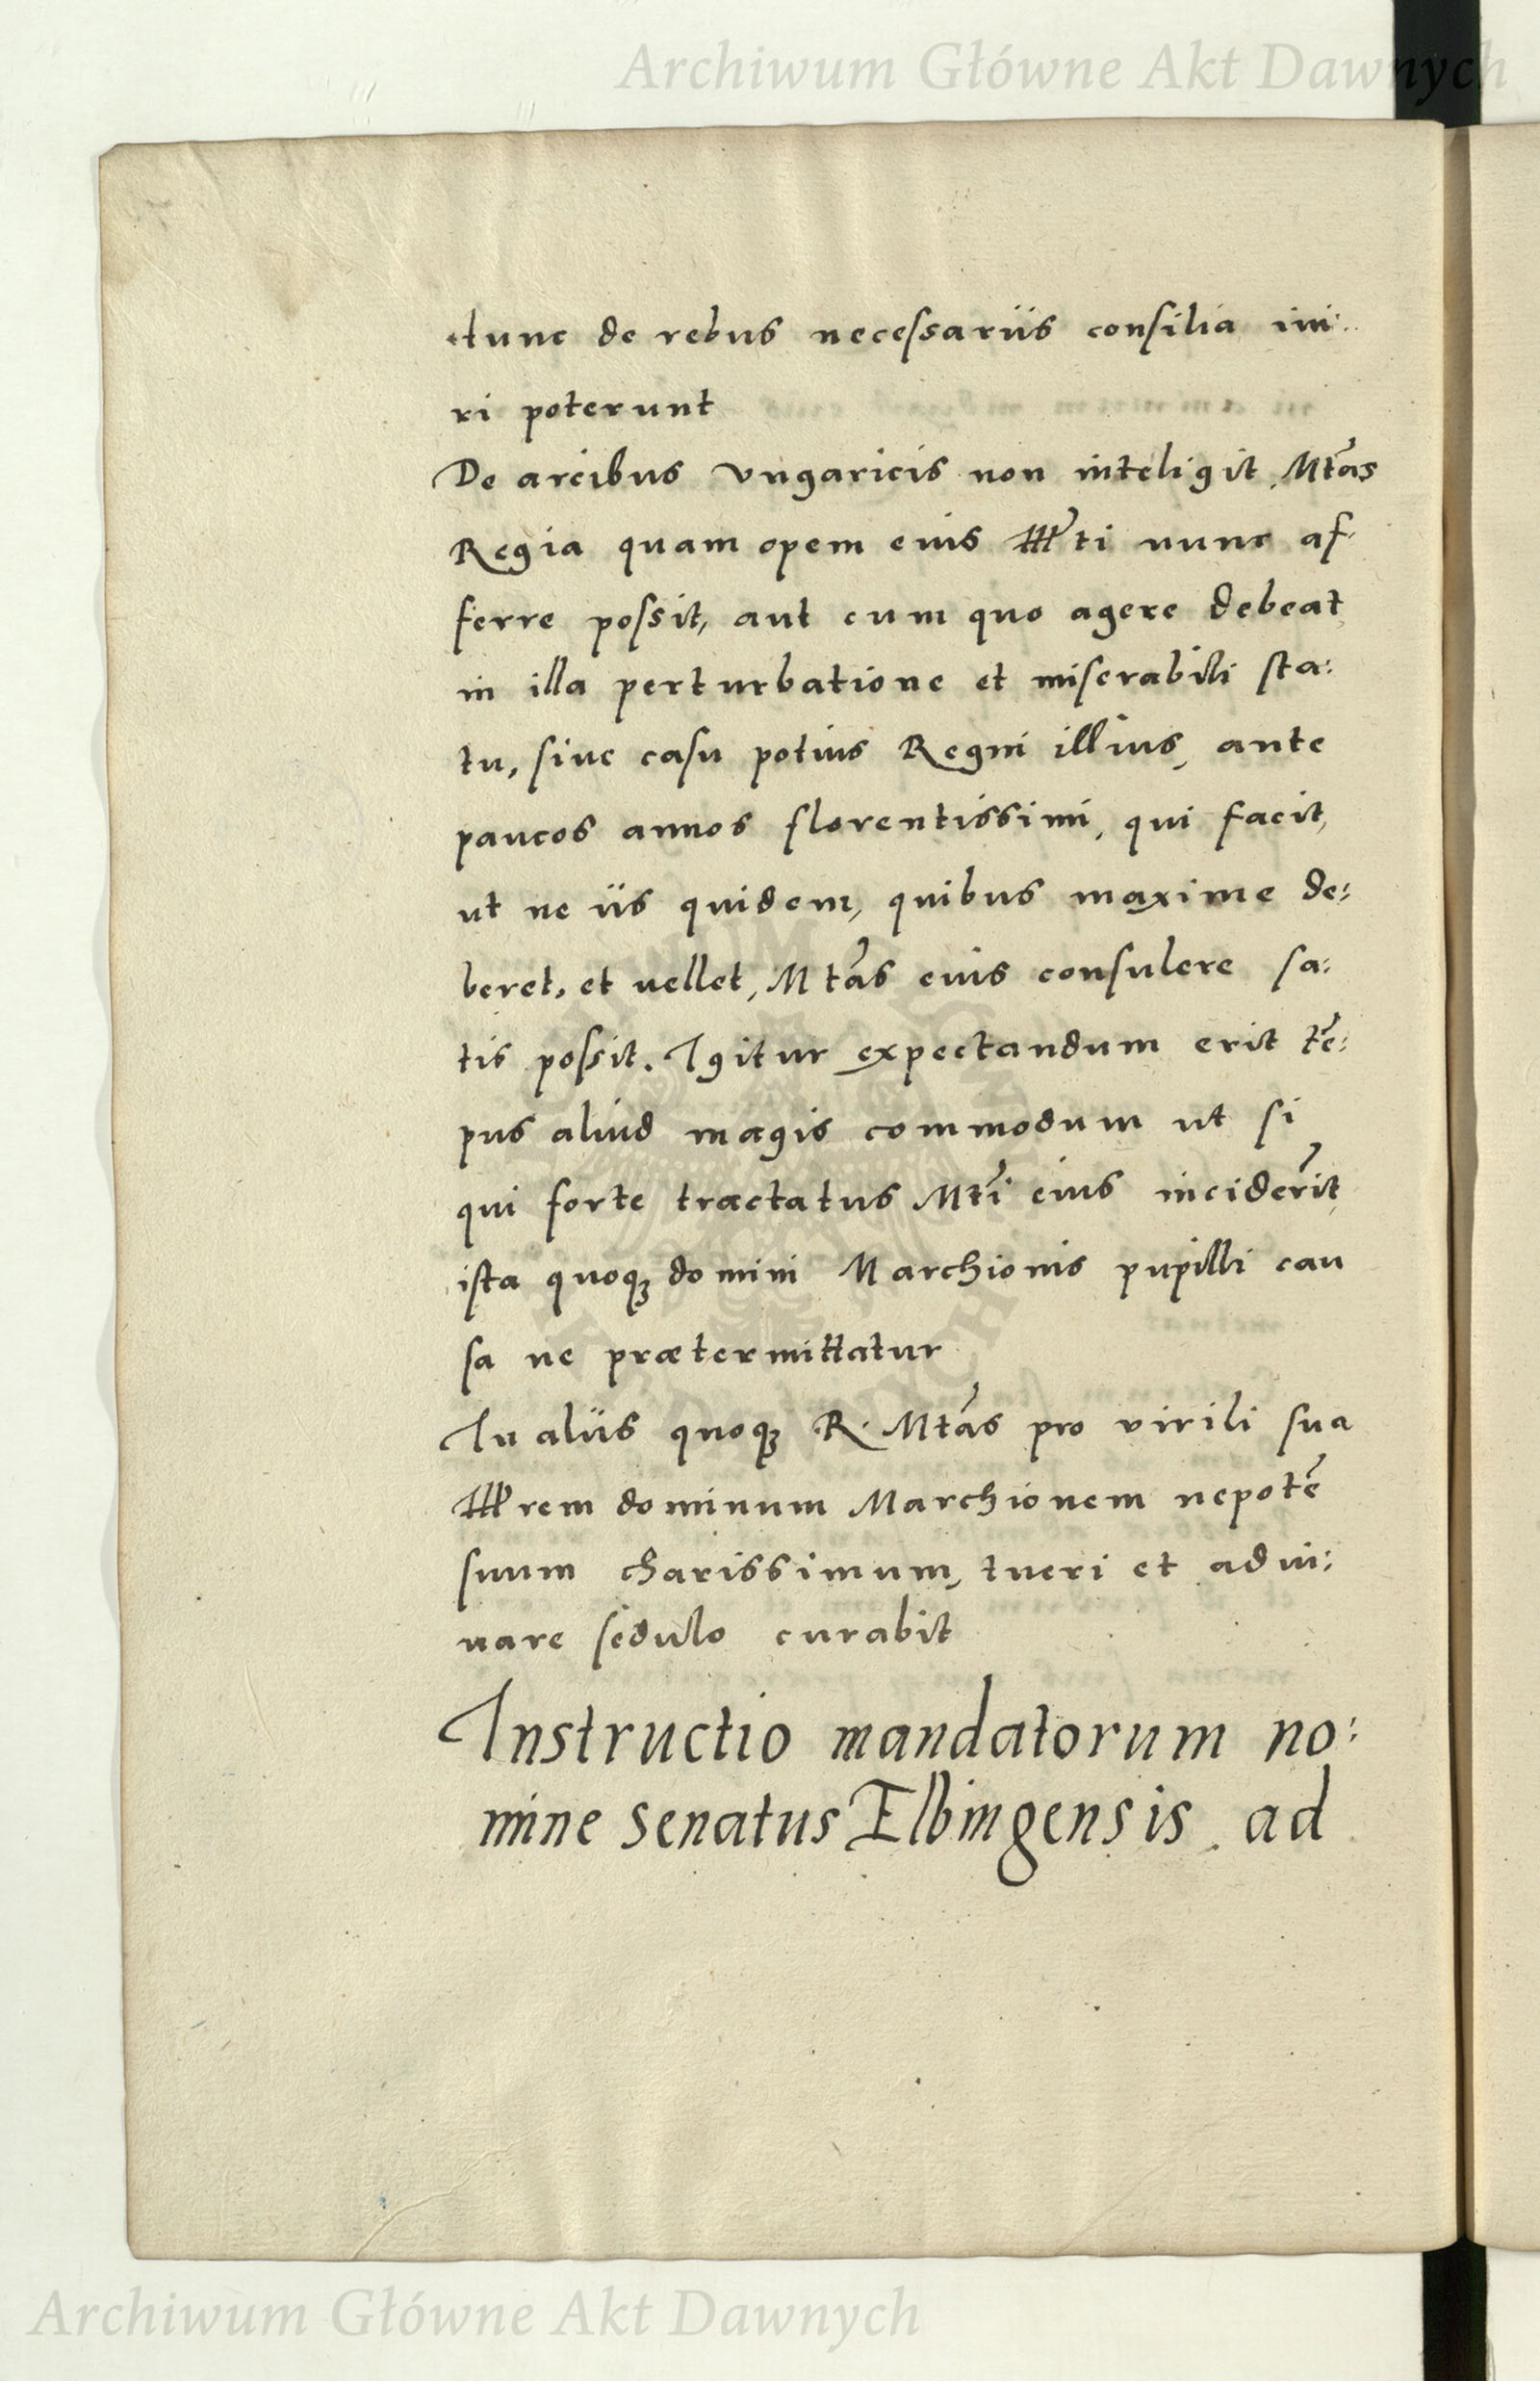 Archiwum Główne Akt Dawnych
tunc de rebus necessariis consilia ini:
ri poterunt
De arcibus Vngaricis non inteligit Mtas
Regia quam opem eius Illti nunc af-
ferre possit, aut cum quo agere debeat
in illa perturbatione et miserabili sta:
tu, siue casu potius Regni illius, ante
paucos annos florentissimi, qui facit,
ut ne iis quidem, quibus maxime de:
beret, et uellet, Mtas eius consulere sa:
tis possit. Igitur expectandum erit tẽ:
pus aliud magis commodum ut si
qui forte tractatus Mti eius inciderĩt,
ista quoqꝫ domini Marchionis pupilli cau
sa ne prætermittatur
In aliis quoqꝫ R. Mtas pro virili sua
Illrem dominum Marchionem nepotẽ
suum charissimum, tueri et adiu:
uare sedulo curabit
Instructio mandatorum no:
mine senatus Elbingensis ad
Archiwum Główne Akt Dawnych